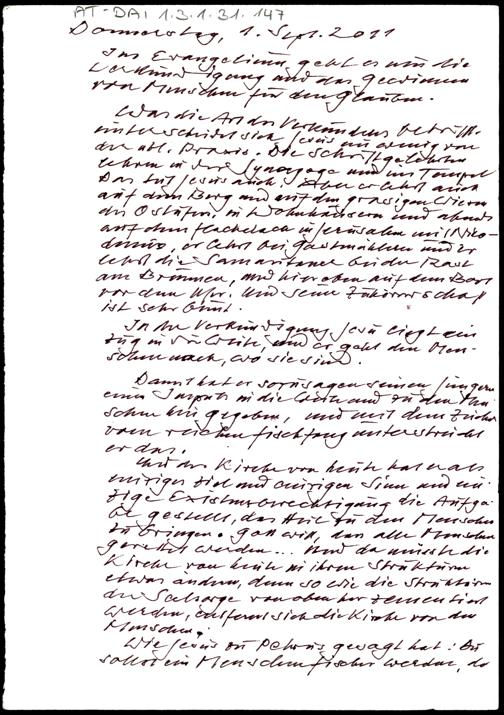 AT-DAI 1.3.1.31.147
Donnerstag, 1. Sept. 2011
Im Evangelium geht es um die
Verkündigung und das Gewinnen
von Menschen für den Glauben.
Was die Art des Verkündens betrifft
unterscheidet sich Jesus ein wenig von
der übl. Praxis. Die Schriftgelehrten
lehren in der Synagoge und im Tempel
Das tut Jesus auch. Aber er lehrt auch
auf dem Berg und auf den grasigen Wiesen
des Ostufers, in Wohnhäusern und abends
auf dem Flachdach in Jerusalem mit Niko-
demus, er lehrt bei Gastmählern und er
lehrt die Samaritanerin bei der Rast
am Brunnen, und hier eben auf dem Boot
vor dem Ufer. Und seine Zuhörerschaft
ist sehr bunt.
In der Verkündigung Jesu liegt ein
Zug in die Weite, und er geht den Men-
schen nach, wo sie sind.
Damit hat er sozusagen seinen Jüngern
einen Impuls in die Weite und zu den Men-
schen hin gegeben, und mit dem Zeichen
vom reichen Fischfang unterstreicht
er das.
Und der Kirche von heute hat er als
einziges Ziel und einzigen Sinn und ein-
zige Existenzberechtigung die Aufga-
be gestellt, das Heil zu den Menschen
zu bringen. Gott will, dass alle Menschen
gerettet werden... Und da müsste die
Kirche von heute in ihren Strukturen
etwas ändern, denn so wie die Strukturen
der Seelsorge von oben her zementiert
werden, entfernt sich die Kirche von den
Menschen.
Wie Jesus zu Petrus gesagt hat: Du
sollst ein Menschenfischer werden, so